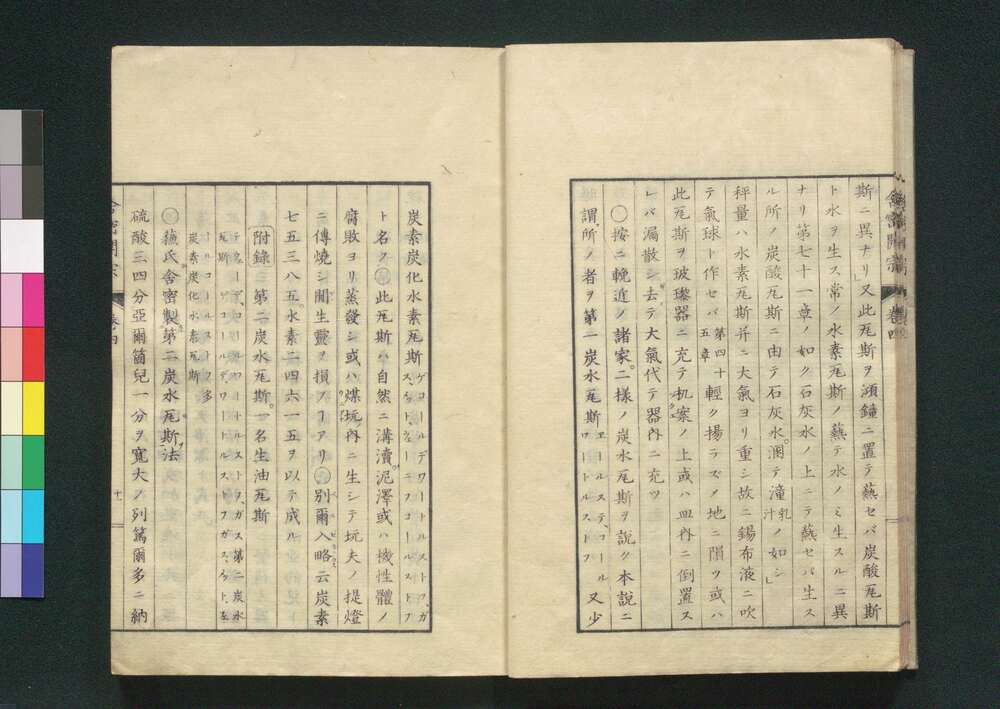 斯ニ異ナリ」又此瓦斯ヲ瀕鐘ニ置テ爇セバ炭酸瓦斯
ト水ヲ生ス常ノ水素瓦斯ノ爇テ水ノミ生スルニ異
ナリ第七十一章ノ如ク石灰水ノ上ニテ爇セバ生ス
ル所ノ炭酸瓦斯ニ由テ石灰水溷テ潼乳汁ノ如シ」
秤量ハ水素瓦斯并ニ大氣ヨリ重シ故ニ鍚布液ニ吹
テ氣球ト作セバ第四十五章輕ク揚ラズノ地ニ隕ツ或ハ
此瓦斯ヲ玻瓈器ニ充テ机案ノ上或ハ皿內ニ倒置ス
レバ漏散シ去テ大氣代テ器內ニ充ツ
○按ニ輓近ノ諸家二樣ノ炭水瓦斯ヲ說ク本說ニ
謂所ノ者ヲ第一炭水瓦斯ヱールステコールワートルストフ又少
舎密開宗 卷四
炭素炭化水素瓦斯ゲコールデワートルストフガス、ミット、ミンコールストフ
ト名ク此瓦斯ハ自然ニ溝瀆泥澤或ハ機性體ノ
腐敗ヨリ蒸發シ或ハ煤坑內ニ生シテ坑夫ノ提燈
ニ傳燒シ間生靈ヲ損フヿアリ 別爾入略云炭素
七五三八五水素二四六一五ヲ以テ成ル
附錄三 第二炭水瓦斯一名生油瓦斯
瓦斯ゲコールデ、ワートルストフガス、ミット、
炭素炭化水素瓦斯
蘓氏舎密製第二炭水瓦斯法
硫酸三四分亞爾箇兒一分ヲ寬大ノ列篤爾多ニ納
舎密開宗 卷四 十一